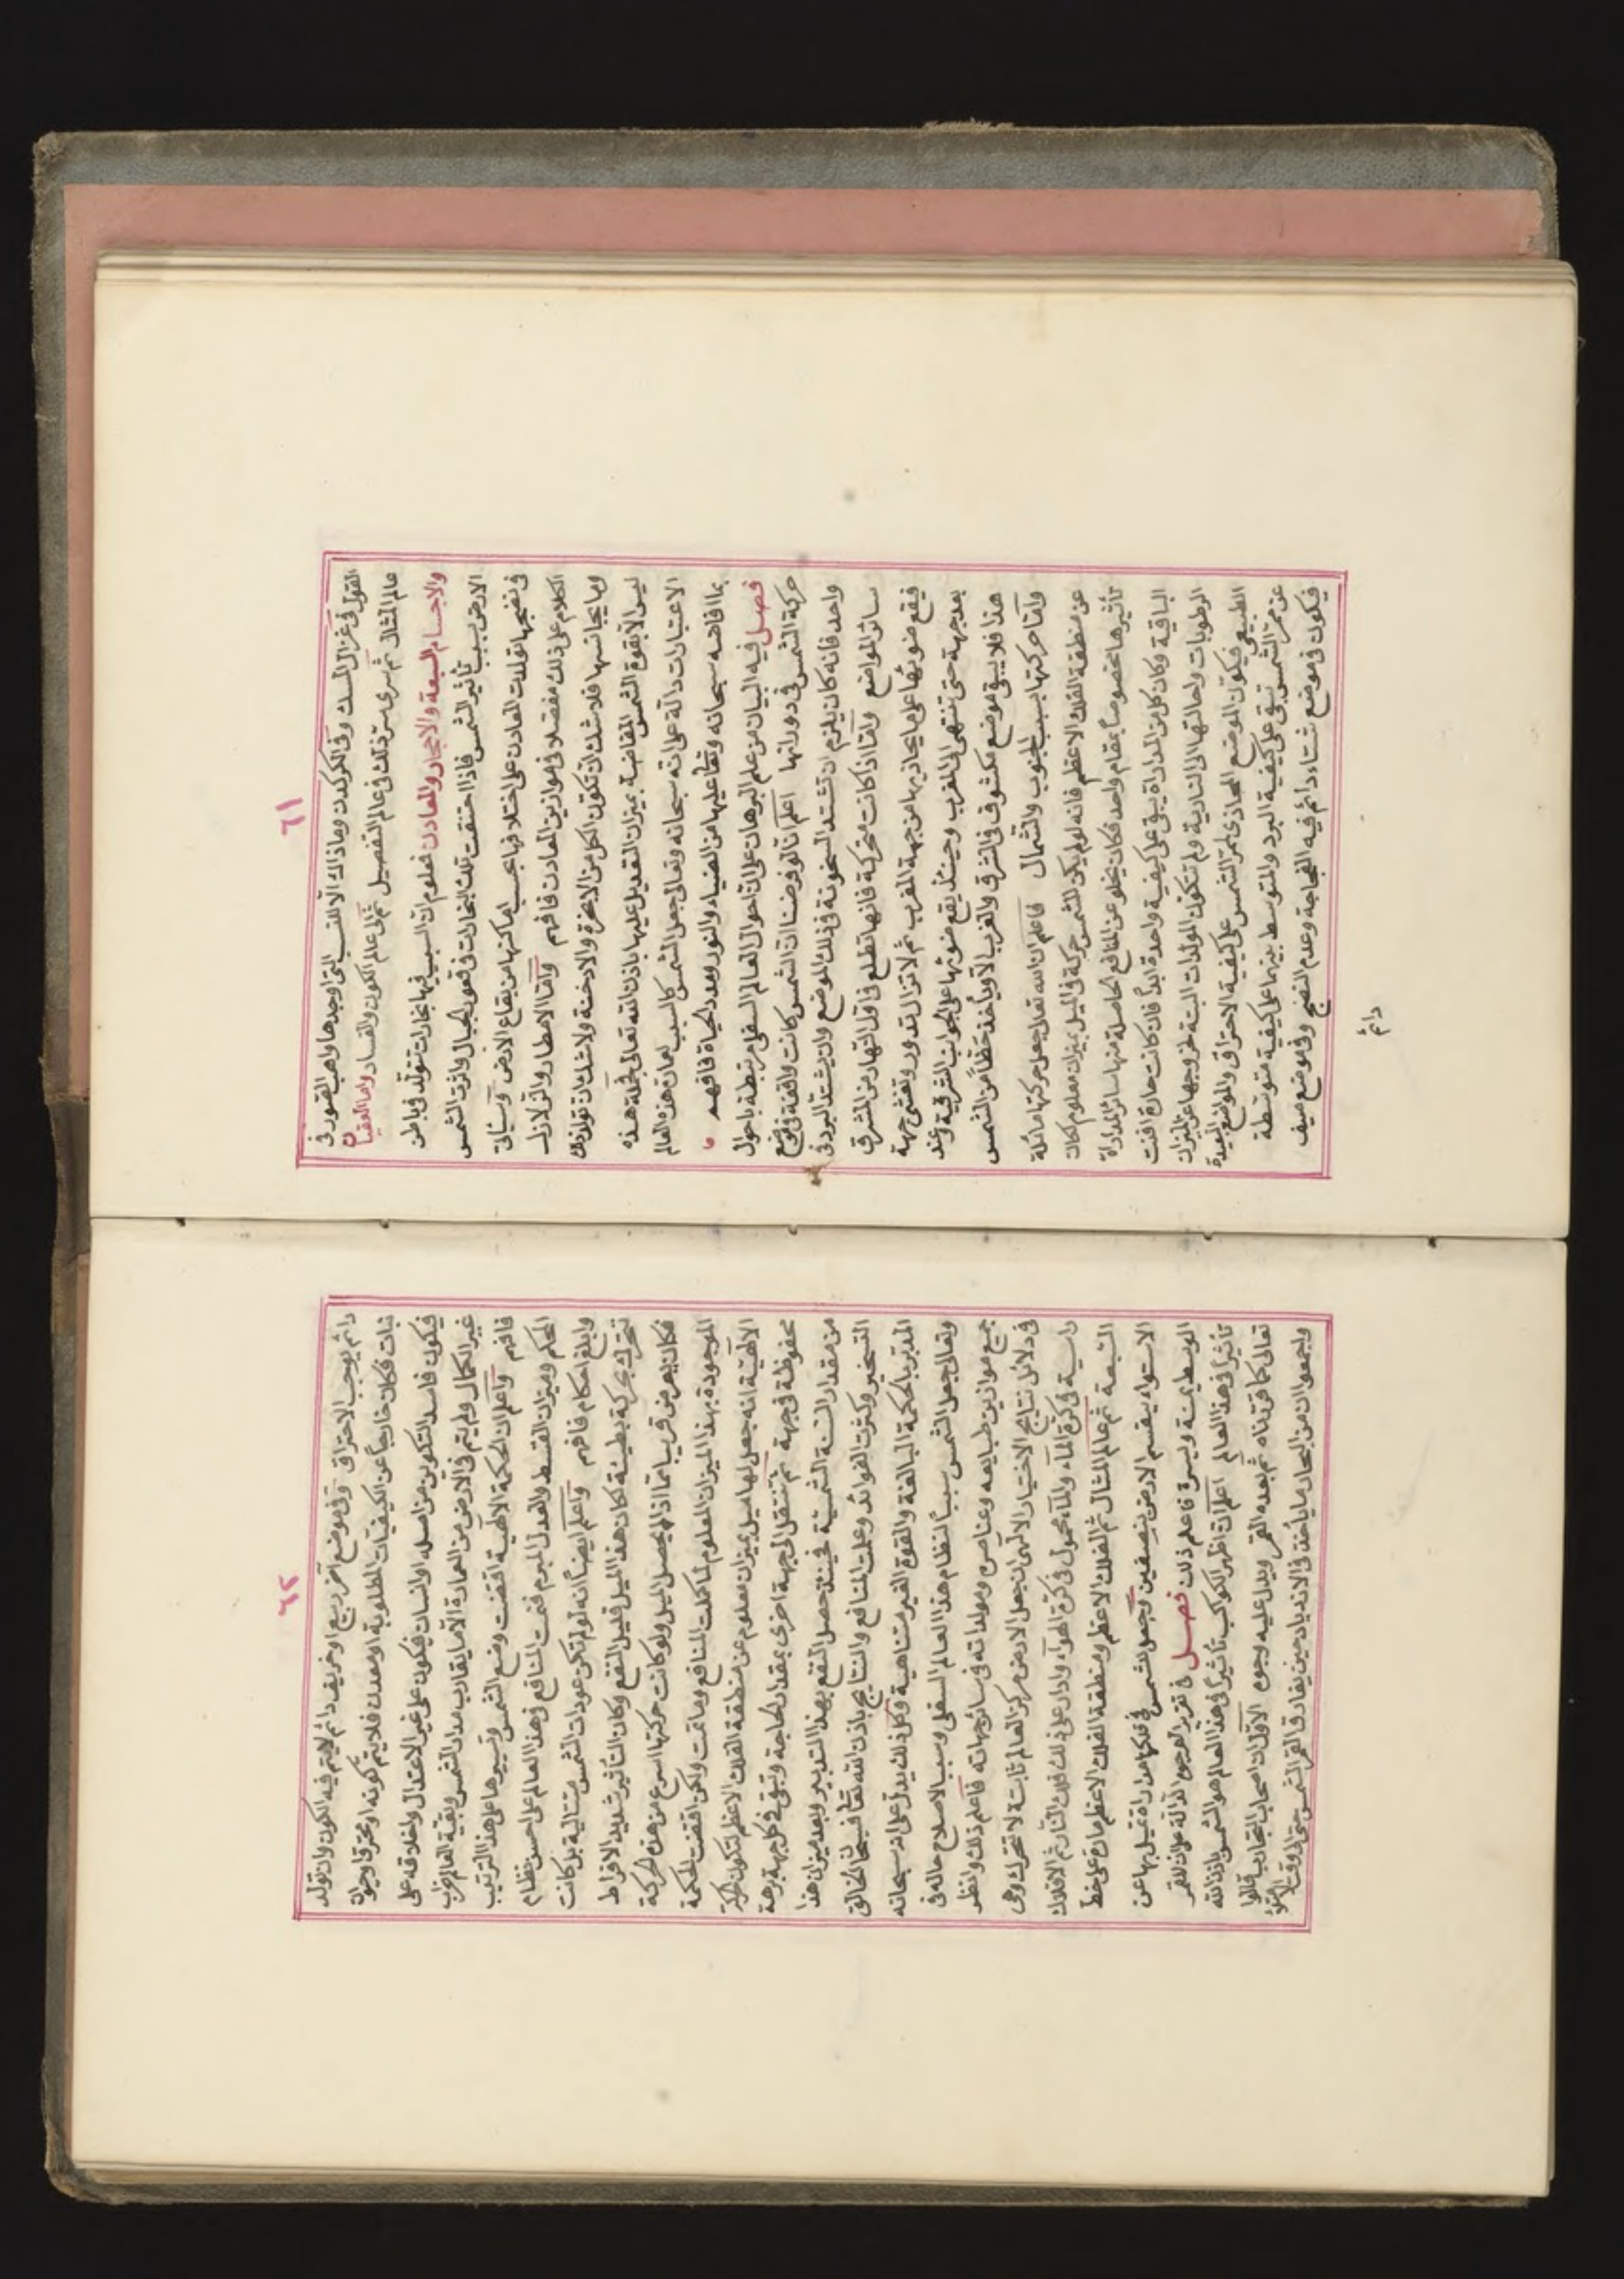 ٦١
القول فى غزال المسك وفى الكركدن وماذاك الا للنسب التى اوجدها واهب الصور فى
عالم المثال ثم سرى سر ذلك فى عالم التفصيل ثم الى عالم الكون والفساد واما العقاقير
والاجساد السبعة والاحجار والمعادن فمعلوم ان السبب فيها بخارات تتولد فى باطن
الارض بسبب تأثير الشمس فاذا احتقنت تلك البخارات فى قعور الجبال واثرت الشمس
فى نضجها تولدت المعادن على اختلافها بحسب اماكنها من بقاع الارض وسيأتى
الكلام على ذلك مفصلا فى موازين المعادن فافهم واما الامطار والزلازل
وما يجانسها فلا شك ان تكون الكل من الابخرة والادخنة ولا شك ان تولد ذلك
ليس الا بقوة الشمس المفاضة بميزان التعديل عليها باذن الله تعالى فجملة هذه
الاعتبارات دالة على انه سبحانه وتعالى جعل الشمس كالسبب لعمارة هذه العالم
بما افاضه سبحانه وتعالى عليها من الضياء والنور وممد الحياة فافهم
فصل فيه البيان من علم البرهان على ان احوال العالم السفلى مرتبطة باحوال
حركة الشمس فى دورانها اعلم انا لو فرضنا ان الشمس كانت واقفة فى موضع
واحد فانه كان يلزم ان تشتد السخونة فى ذلك الموضع وان يشتد البرد فى
سائر المواضع واما اذا كانت متحركة فانها تطلع فى اول النهار من المشرق
فيقع ضوئها على ما يحاذيها من جهة المغرب ثم لا تزال تدور وتغشى جهة
بعد جهة حتى تنتهى الى المغرب وحينئذ يقع ضوئها على الجوانب الشرقية وعند
هذا فلا يبقى موضع مكشوف فى الشرق والغرب الا ويأخذ حظا من الشمس
واما حركتها بسبب الجنوب والشمال فاعلم ان الله تعالى جعل حركتها مائلة
عن منطقة الفلك الاعظم فانه لو لم يكن للشمس حركة فى الميل بميزان معلوم لكان
تأثيرها مخصوصا بمقام واحد فكان يخلو عن المنافع الحاصلة منها سائر المداراة
الباقية وكان كل من المداراة يبقى على كيفية واحدة ابدا فان كانت حارة افنت
الرطوبات واحالتها الى النارية ولم تتكون المولدات البتة لخروجها عن الميزان
الطبيعى فيكون الموضع المحاذى لممر الشمس على كيفية الاحتراق والموضع البعيدة
عن ممر الشمس تبقى على كيفية البرد والمتوسط بينهما على كيفية متوسطة
فيكون فى موضع شتاء دائم فيه الفجاجة وعدم النضج وفى موضع صيف
دائم
٦٢
دائم يوجب الاحتراق وفى موضع آخر ربيع او خريف دائم لا يتم فيه الكون وان تولد
نبات فكان خارجا عن الكيفيات المطلوبة او معدن فلا يتم كونه او محترقا وحيوان
فيكون فاسد التكوين من اصله وانسان فيكون على غير الاعتدال واخلاقه على
غير الكمال ولم يتم فى الارض من العمارة الا ما يقارب مدار الشمس وبقية العالم خراب
فافهم واعلم ان الحكمة الالهية اقتضت وضع الشمس وتسييرها على هذا الترتيب
المحكم وميزان القسط والعدل المبرم فتمت المنافع فى هذا العالم على احسن نظام
وابلغ احكام فافهم واعلم ايضا انه لو لم تكن عودات الشمس متتالية بل كانت
تتحرك بحركة بطيئة لكان هذا الميل قليل النفع وكان التأثير شديد الافراط
فكان يعرض قريبا مما اذا لم يحصل الميل ولو كانت حركتها اسرع من هذه الحركة
الموجودة بهذا الميزان المعلوم لما كملت المنافع وما تمت ولكن اقتضت الحكمة
الالهية انه جعل لها ميل بميزان معلوم عن منطقة الفلك الاعظم لتكون الحركة
محفوظة فى جهة ثم تنتقل الى جهة اخرى بمقدار الحاجة وتبقى فى كل جهة برهة
من مقدار السنة الشمسية فحينئذ حصل النفع بهذا التدبير وبعد ميزان هذا
التسخير وكثرت الفوائد وعمت المنافع والنتايج باذن الله تعالى فسبحان الخالق
المدبر بالحكمة البالغة والقوة الغير متناهية وكل ذلك يدل على انه سبحانه
وتعالى جعل الشمس سببا لنظام هذا العالم السفلى وسببا لاصلاح حاله فى
جميع موازين طبايعه وعناصره ومولداته فى سائر جهاته فاعلم ذلك وانظر
فى دلائل نتايج الاختيار الالهى ان جعل الارض مركز العالم ثابتة لا تتحرك وهى
راسية فى كرة الماء والماء محمول فى كرة الهواء وادار على ذلك فلك النار ثم الافلاك
السبعة ثم عالم المثال ثم الفلك الاعظم ومنطقة الفلك الاعظم مارة على خط
الاستواء يقسم الارض بنصفين وجعل الشمس فى فلكها مداراة تميل بها عن
الوسط يمنة ويسرة فاعلم ذلك فصل فى تقرير الوجوه الدالة على ان للقمر
تأثيرا فى هذا العالم اعلم ان اظهر الكواكب تأثيرا فى هذا العالم هو الشمس باذن الله
تعالى كما قررناه ثم بعده القمر ويدل عليه وجوه الاول ان اصحاب التجارب قالوا
واجمعوا ان من البحار ما يأخذ فى الازدياد من حين يفارق القمر الشمس حتى الى وقت الامتلاء